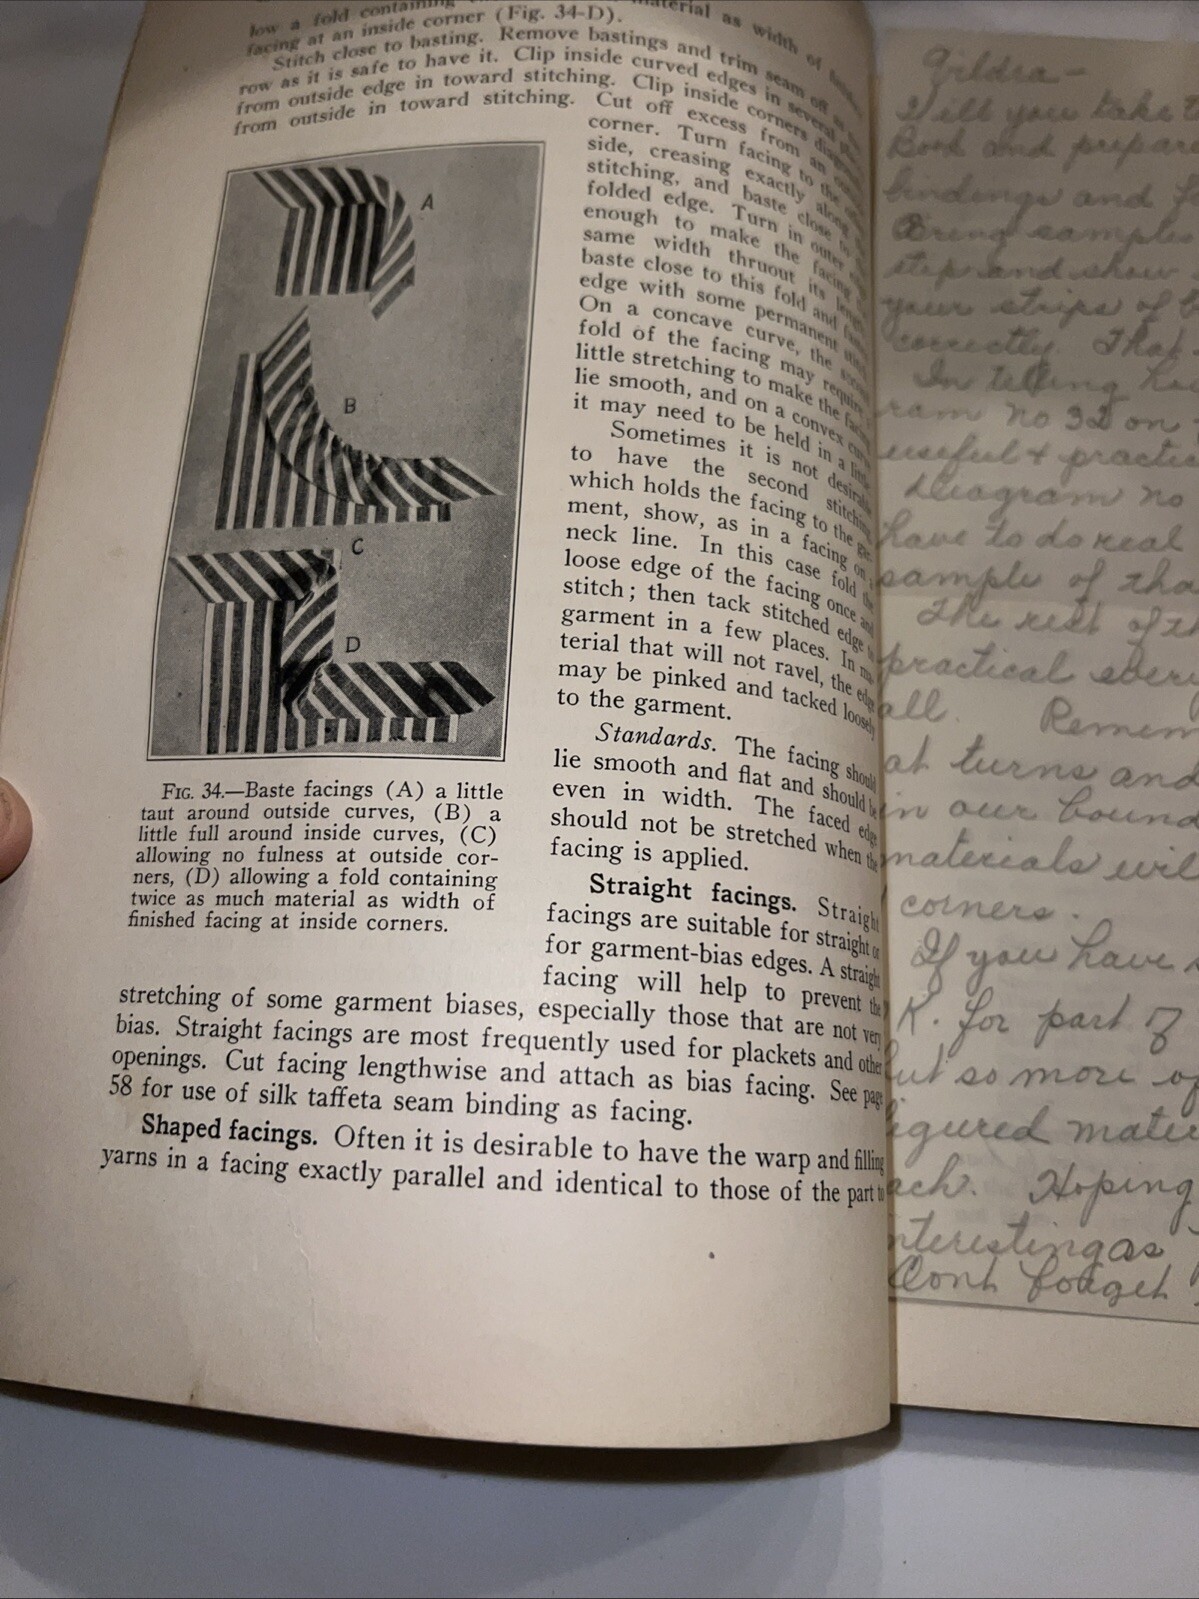 low a fold containing material as width of
facing at an inside corner (Fig. 34-D).
Stitch close to basting. Remove bastings and trim seam off
row as it is safe to have it. Clip inside curved edges in several
from outside edge in toward stitching. Clip inside corners
from outside in toward stitching. Cut off excess from an
corner. Turn facing to the
side, creasing exactly along
stitching, and baste close to
folded edge. Turn in outer
enough to make the facing
same width thruout its length
baste close to this fold and
edge with some permanent
On a concave curve, the
fold of the facing may require
little stretching to make the facing
lie smooth, and on a convex curve
it may need to be held in a little
Sometimes it is not desirable
to have the second stitching
which holds the facing to the gar-
ment, show, as in a facing on a
neck line. In this case fold the
loose edge of the facing once and
stitch; then tack stitched edge to
garment in a few places. In ma-
terial that will not ravel, the edge
may be pinked and tacked loosely
to the garment.
Standards. The facing should
lie smooth and flat and should be
even in width. The faced edge
should not be stretched when the
facing is applied.
Straight facings. Straight
facings are suitable for straight or
for garment-bias edges. A straight
facing will help to prevent the
A
B
C
D
FIG. 34.—Baste facings (A) a little
taut around outside curves, (B) a
little full around inside curves, (C)
allowing no fulness at outside cor-
ners, (D) allowing a fold containing
twice as much material as width of
finished facing at inside corners.
stretching of some garment biases, especially those that are not very
bias. Straight facings are most frequently used for plackets and other
openings. Cut facing lengthwise and attach as bias facing. See page
58 for use of silk taffeta seam binding as facing.
Shaped facings. Often it is desirable to have the warp and filling
yarns in a facing exactly parallel and identical to those of the part to
Gildra —
Will you take
Book and prepare
bindings and
Bring samples
step and show
your strips of
correctly. That
In telling
ram no 32 on
useful + practic
Diagram no
have to do real
sample of tha
The rest of th
practical every
all. Remem
at turns and
in our bound
materials will
corners.
If you have
K. for part of
but so more of
igured mater
ach. Hoping
nteresting as
Dont forget